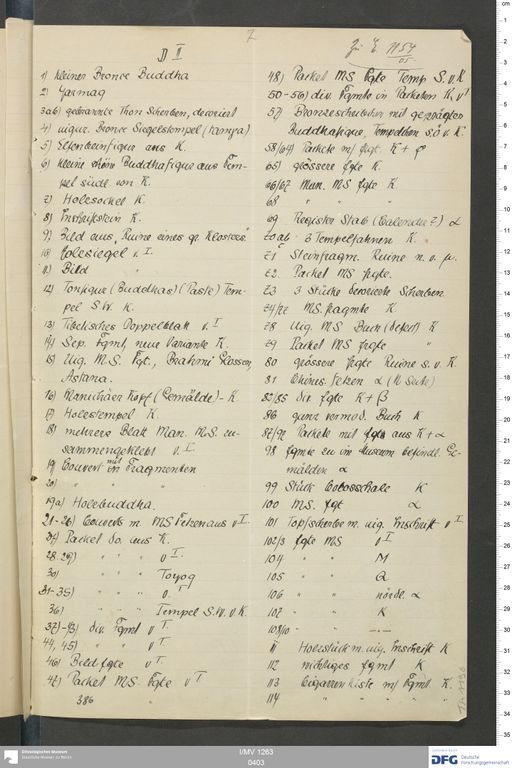 7
Zu E 1154/05
D II
1) Kleiner Bronce Buddha
2) Yarmaq
3ab) gebrannte Thon Scherben, decoriert
4) uigur. Bronce Siegelstempel (tamγa)
5) Elfenbeinfigur aus K.
6) Kleine schöne Buddhafigur aus Tem-
pel südl. von K.
7) Holzsockel K.
8) Inschriftstein K.
9) Bild aus "Ruine eines gr. Klosters"
10) Holzsiegel v. I.
11) Bild "
12) Tonfigur (Buddhas) (Paste) Tem-
pel S.W. K.
13) Tibetisches Doppelblatt v. I
14) Sep. Fgmt, neue Variante K.
15) Uig. M.S. Fgt., Brahmi Glossen,
Astana.
16) Manichäer Kopf (Gemälde) - K
17) Holzstempel K.
18) mehrere Blatt Man. M.S. zu-
sammengeklebt v. I.
19) Couvert mit Fragmenten
20) " " "
19a) Holzbuddha.
21-26) Couverts m. MS Fetzen aus v I
27) Packet do. aus K.
28. 29) " " " v I.
30) " " " Toyoq
31-35) " " " v. I
36) " " " Tempel S.W. v K.
37)-43) div. Fgmt v I
44, 45) " " v I
46) Bild fgte v I
47) Packet MS. Fgte v I
386
48) Packet MS Fgte Temp S. v. K
50-56) div. Fgmte in Packeten K, v I
57) Bronzescheibchen mit geprägter
Buddhafigur, Tempelchen s.ö v. K.
58/64) Packete m/ frgt. K +
65) grössere fgte K.
66/67 Man. MS fgte K
68 " " "
69 Register Stab (Calender?) α
70ab 3 Tempelfahnen K.
71 Steinfragm. Ruine n. v. μ.
72 Packet MS frgte.
73 3 Stücke decorierte Scherben
74/77 MS. fragmte K
78 Uig. MS Buch (defect) K
79 Packet MS frgte "
80 grössere frgte Ruine s. v. K.
81 Chines. Fetzen α (N Seite)
82/85 div fgte K + β
86 ganz vermod. Buch K
87/97 Packete mit fgte aus K + α
98 fgmte zu im Museum befindl. Ge-
mälden α
99 Stück Cocosschale K
100 M.S. fgt α
101 Topfscherbe m. uig. Inschrift v I
102/3 fgte MS v I
104 " " M
105 " " Q
106 " " nördl. α
107 " " K
108/110 " "
11 Holzstück m. uig. Inschrift K
112 nichtiges fgmt K
113 Cigarrenkiste m/ Fgmt K.
114 " " "
TA 1190
Ethnologisches Museum
Staatliche Museen zu Berlin
I/MV 1263
0403
gefördert durch
DFG Deutsche
Forschungsgemeinschaft